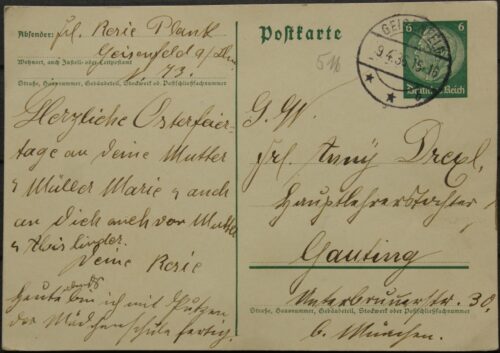 Absender: Frl. Rosie Plank
Geisenfeld a/Ilm
Wohnort, auch Zustell- oder Leitpostamt
N. 73.
Straße, Hausnummer, Gebäudeteil, Stockwerk od. Postschließfachnummer
Herzliche Osterfeier-
tage an deine Mutter
u Müller Marie u auch
an Dich auch von Mutter
u
Deine Rosie
Heute abds bin ich mit Putzen
der Mädchenschule fertig.
Postkarte
516
GEISENFELD
9.4.36.15-16
6 6
Deutsches Reich
G. W.
Frl. Anny Drexl,
Hauptlehrerstochter
Gauting
Unterbrunnerstr. 30
Straße, Hausnummer, Gebäudeteil, Stockwerk oder Postschließfachnummer
b. München.